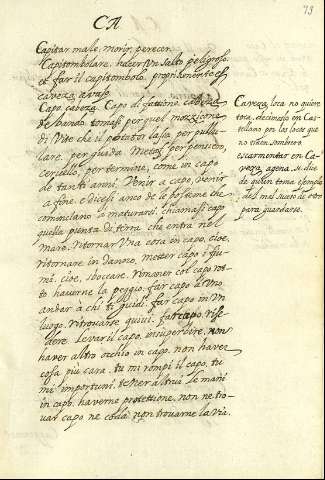 CA
73
Capitar male, morir, perecer.
Capitombolare, hacer un salto peligroso
et far il capitombolo, propriamente es
caveza avaxo.
Capo, cabeza. Capo di fattione, cabeza
de bando. tomasi per quel mozzicone
di Vite che il potator lassa per pullu
lare. per guida. Metes. per pensier,
cervello, per termine, come in capo
de tanti anni. Venir a capo, venir
a fine. e dicesi anco de le posteme che
cominciano a maturarsi. chiamasi capo
quella punta di terra che entra nel
maro. ritornar una cosa in capo, cioe,
ritornare in danno, metter capo i fiu
mi, cioe, sboccare. rimaner col capo rot
to haverne la peggio. far capo a uno
andar à chi ti guidi. far capo in un
luogo, ritrovarse quivi. far capo, rise
dere. levar il capo insuperbire. non
haver altro occhio in capo. non haver
cosa piu cara. tu mi rompi il capo, tu
mi importuni. tener altrui le mani
in capo. haverne protettione. non ne tro
var capo ne coda, non trovarne la via.
Caveza loca no quiere
toca, decimoslo en Cas
tellano por los locos que
no traen sombrero.
escarmentar en Ca
veza agena. se dice
de quien toma exemplo
del mal suceso de otro
para guardarse.